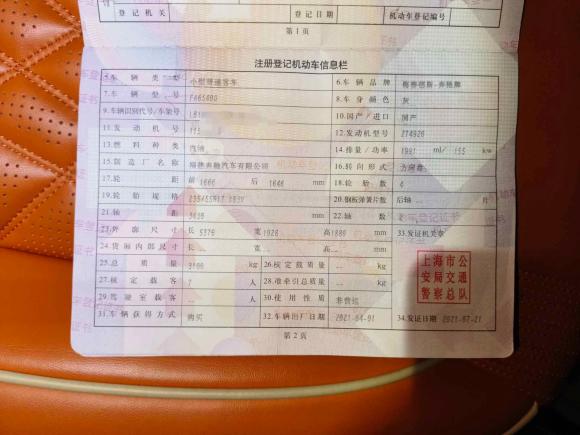 登记机关 登记日期 机动车登记编号
第1页
注册登记机动车信息栏
5.车辆类型 小型普通客车 6.车辆品牌 梅赛德斯-奔驰牌
7.车辆型号 8.车身颜色 灰
9.车辆识别代号/车架号 10.国产/进口 国产
11.发动机号 12.发动机型号 274920
13.燃料种类 汽油 14.排量/功率 1991 ml/ 155 kw
15.制造厂名称 福建奔驰汽车有限公司 16.转向形式 方向盘
17.轮距 前 1666 后 1646 mm 18.轮胎数 4
19.轮胎规格 20.钢板弹簧片数 后轴 片
21.轴距 mm 22.轴数 2
23.外廓尺寸 长 5370 宽 1928 高 1880 mm 33.发证机关章
24.货厢内部尺寸 长 宽 高 mm
25.总质量 3100 kg 26.核定载质量 kg
27.核定载客 7 人 28.准牵引总质量 kg
29.驾驶室载客 人 30.使用性质 非营运
31.车辆获得方式 购买 32.车辆出厂日期 2021-04-01 34.发证日期 2021-07-21
上海市公
安局交通
警察总队
第2页